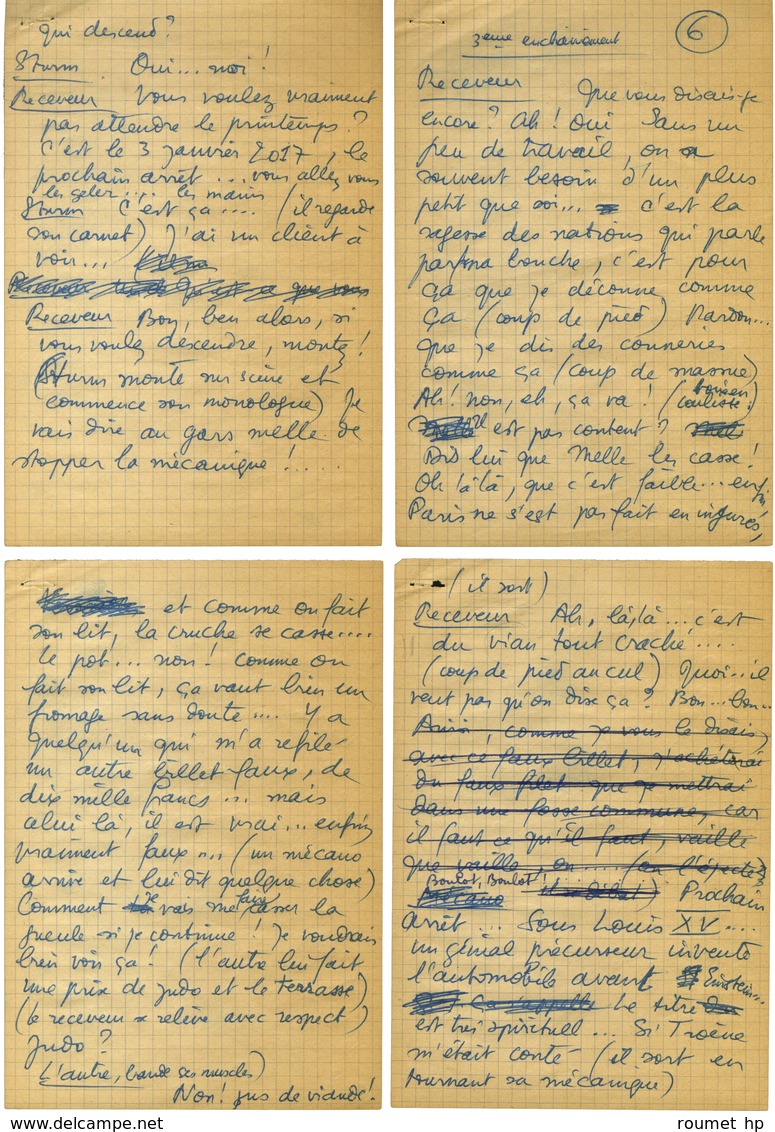 qui descend?
Sturm Oui... moi!
Receveur Vous voulez vraiment
pas attendre le printemps?
C'est le 3 janvier 2017, le
prochain arrêt... vous allez vous
les geler.... les mains
Sturm C'est ça.... (il regarde
son carnet) J'ai un client à
voir...
Receveur Bon, ben alors, si
vous voulez descendre, montez!
(Sturm monte sur scène et
commence son monologue) Je
vais dire au gars Melle de
stopper la mécanique!.....
6
3eme enchaînement
Receveur Que vous disais-je
encore? Ah! Oui Sans un
peu de travail, on a
souvent besoin d'un plus
petit que soi... c'est la
sagesse des nations qui parle
par ma bouche, c'est pour
ça que je déconne comme
ça (coup de pied) Pardon...
que je dis des conneries
comme ça (coup de massue)
Ah! non, eh, ça va! (voix en
coulisse:)
Il est pas content?
Dis lui que Melle les casse!
Oh là là, que c'est faible... enfin
Paris ne s'est pas fait en injures,
et comme on fait
son lit, la cruche se casse....
le pot... non! comme on
fait son lit, ça vaut bien un
fromage sans doute.... Y a
quelqu'un qui m'a refilé
un autre billet faux, de
dix mille francs... mais
celui là, il est vrai... enfin,
vraiment faux... (un mécano
arrive et lui dit quelque chose)
Comment je vais me faire casser la
gueule si je continue! je voudrais
bien voir ça! (l'autre lui fait
une prix de judo et le terrasse)
(le receveur se relève avec respect)
Judo?
L'autre, (bande ses muscles)
Non! jus de viande!
(il sort)
Receveur Ah, là, là... c'est
du vian tout craché....
(coup de pied au cul) Quoi... il
veut pas qu'on dise ça? Bon... bon..
Ainsi, comme je vous le disais,
avec ce faux billet, j'achèterai
du faux filet que je mettrai
dans une fosse commune, car
il faut ce qu'il faut, vaille
que vaille, on.... (on l'éjecte)
Boulot, Boulot!
Mécano il débat) Prochain
arrêt... Sous Louis XV....
un génial précurseur invente
l'automobile avant Einstein...
Ça s'appelle Le titre
est très spirituel... Si Troène
m'était conté (il sort en
tournant sa mécanique)
roumet hp